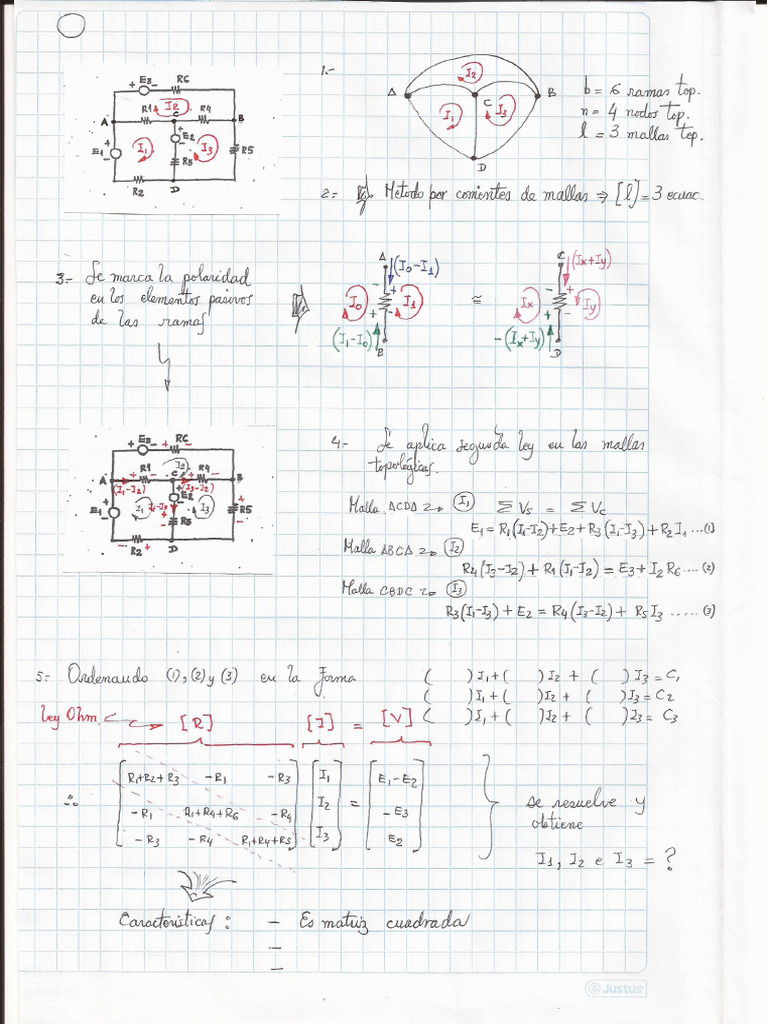 E3
R6
+ -
R1
I2
C
R4
A
B
E1
I1
E2
I3
R5
R3
R2
D
1.-
A
I2
B
C
I1
I3
D
b = 6 ramas top.
n = 4 nodos top.
l = 3 mallas top.
2.- Metodo por corrientes de mallas ⇒ [l] = 3 ecuac.
3.- Se marca la polaridad
en los elementos pasivos
de las ramas
A
(I0-I1)
I0
I1
(I1-I0)
B
≅
C
(Ix+Iy)
Ix
Iy
-(Ix+Iy)
D
E3
R6
R1
I2
C
R4
A
B
(I1-I2)
(I3-I2)
E1
I1
I1-I3
E2
I3
R5
R3
R2
D
4.- Se aplica segunda ley en las mallas
topológicas.
Malla ACDA ⇒ (I1) ΣVs = ΣVc
E1 = R1(I1-I2)+E2+R3(I1-I3)+R2I1 ....(1)
Malla ABCA ⇒ (I2)
R4(I3-I2)+R1(I1-I2) = E3+I2R6 ....(2)
Malla CBDC ⇒ (I3)
R3(I1-I3)+E2 = R4(I3-I2)+R5I3 ......(3)
5.- Ordenando (1), (2) y (3) en la forma ( )I1+( )I2+( )I3=C1
( )I1+( )I2+( )I3=C2
ley Ohm. [R] [I] = [V] ( )I1+( )I2+( )I3=C3
R1+R2+R3 -R1 -R3 I1 E1-E2
∴ -R1 R1+R4+R6 -R4 I2 = -E3
-R3 -R4 R1+R4+R5 I3 E2
se resuelve y
obtiene
I1, I2 e I3 = ?
Características: - Es matriz cuadrada
-
-
Justus